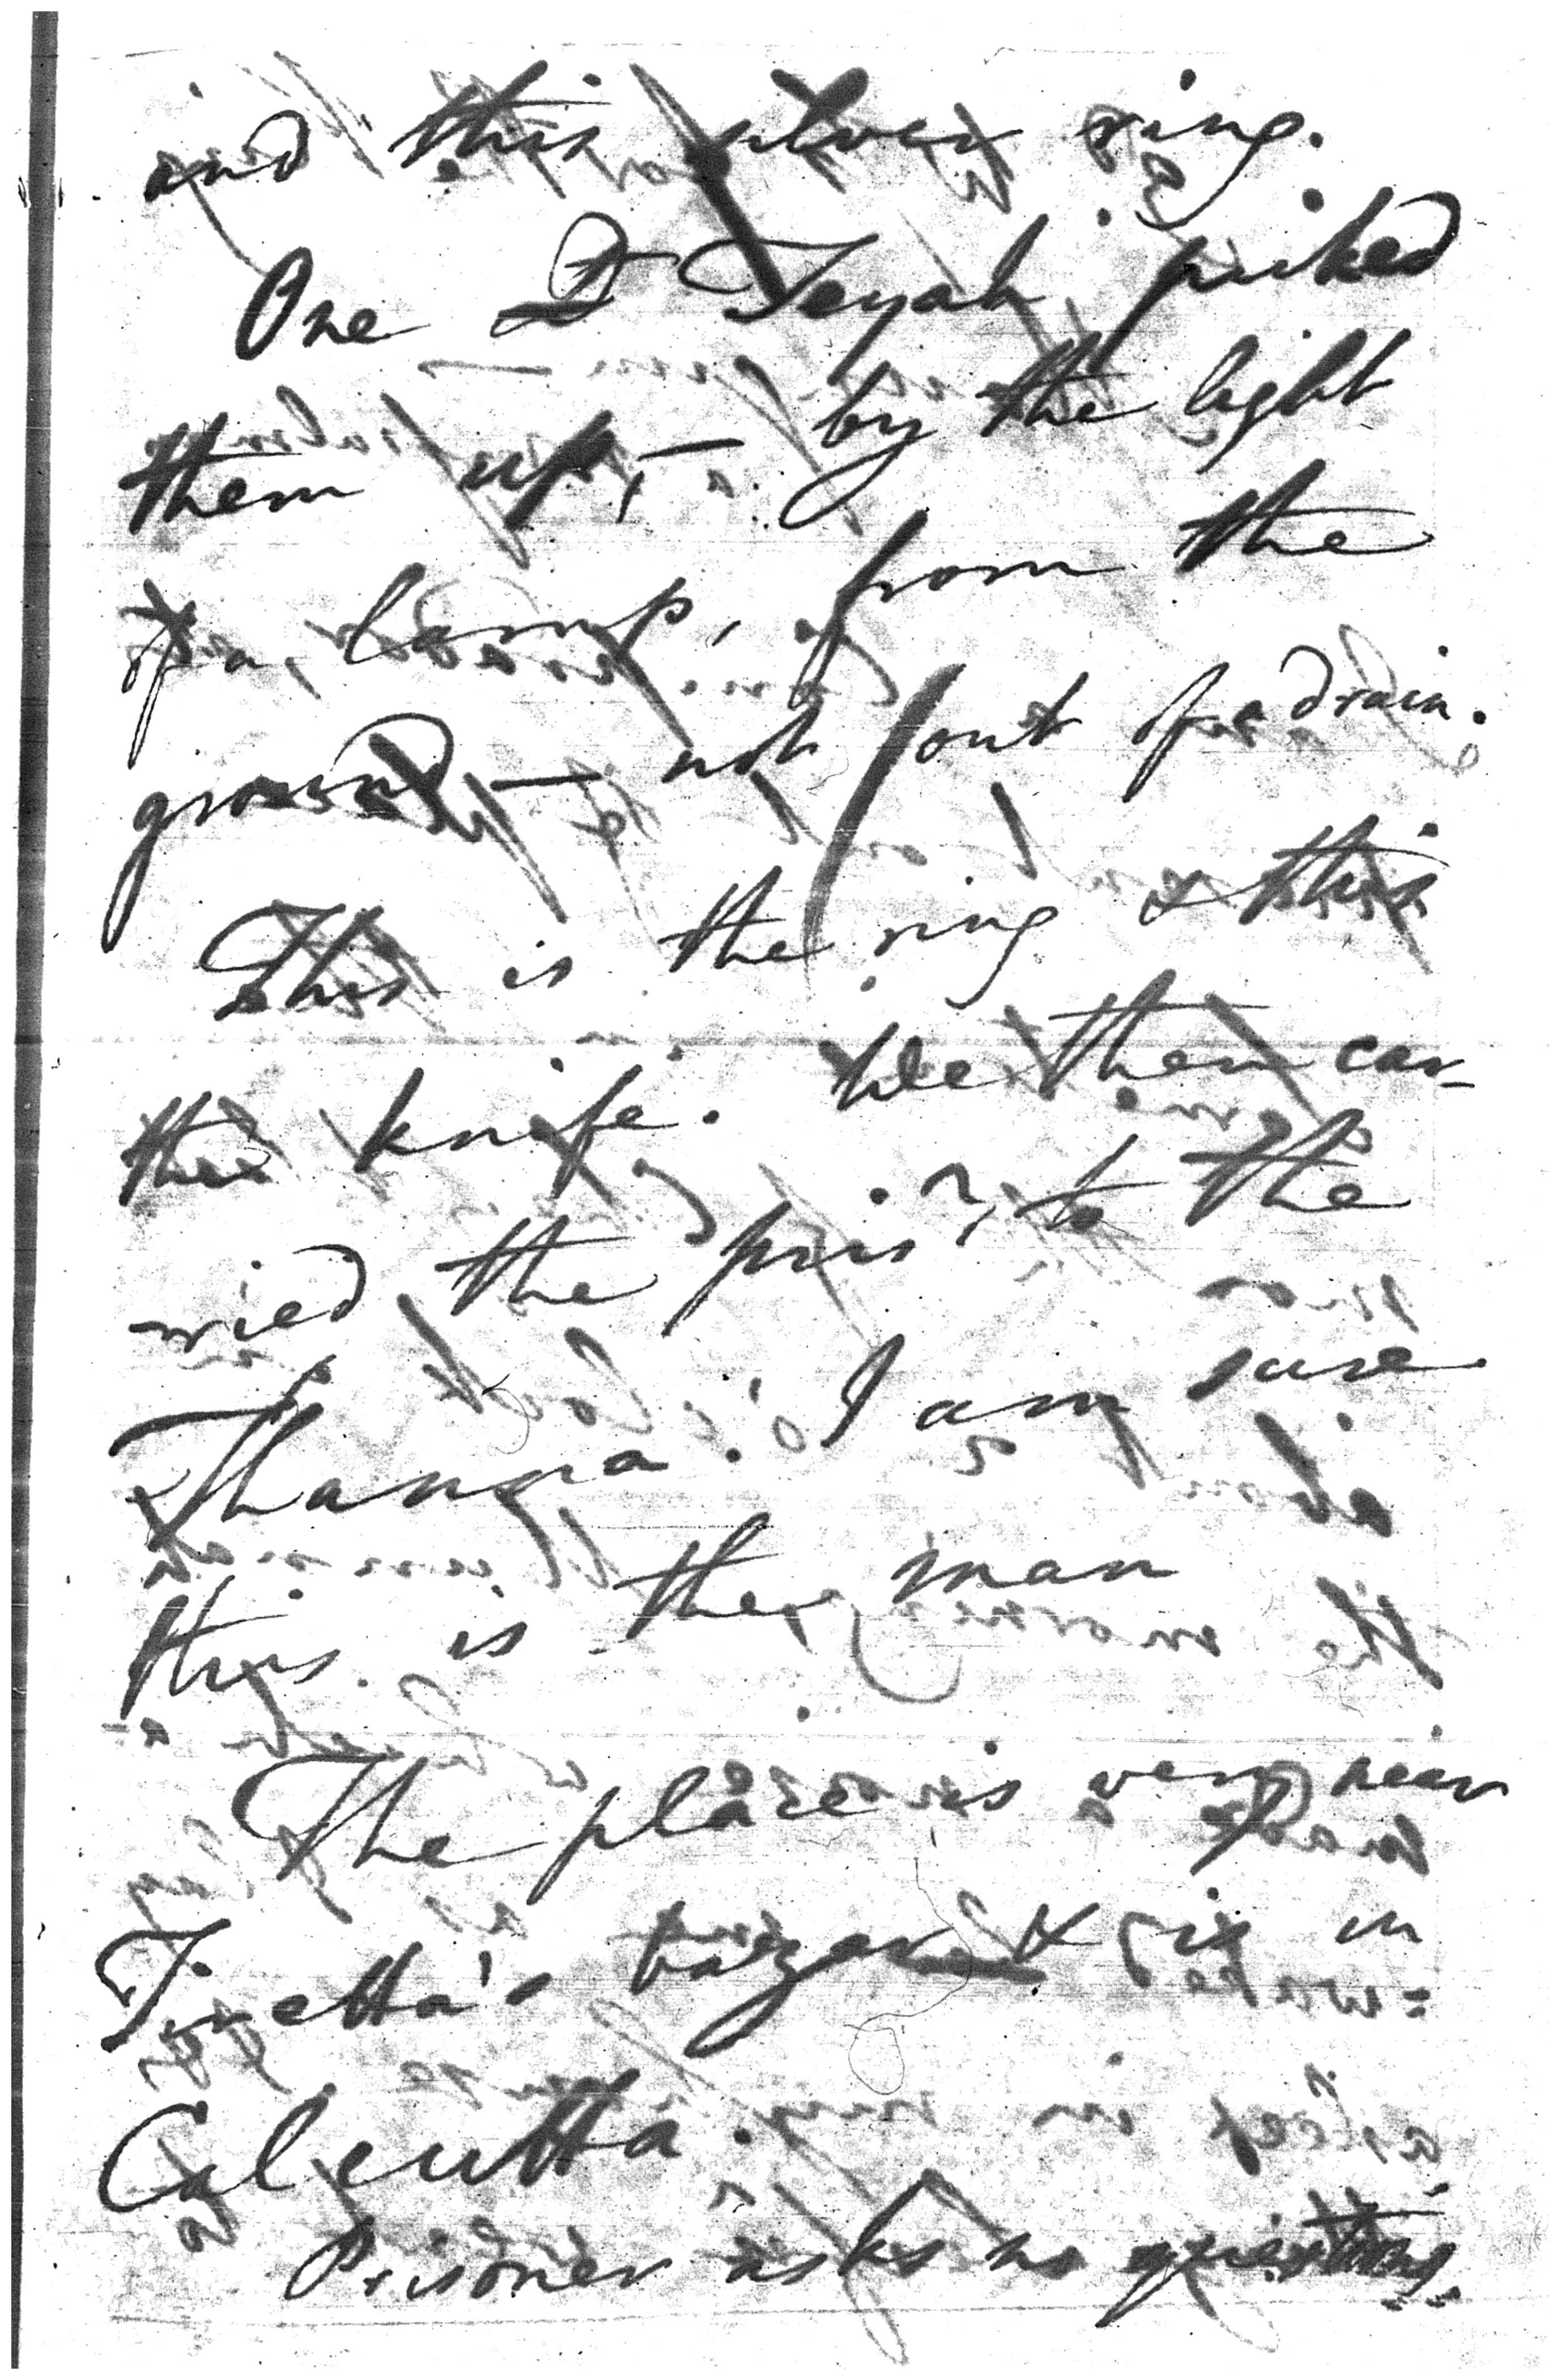 and this silver ring.
One D Teyab picked
them up, — by the light
of a lamp, from the
ground — not out of a drain.
This is the ring & this
the knife. We then car-
ried the prisr, to the
Thanna. I am sure
this is the man
The place is very near
Tiretta's bazar & is in
Calcutta.
Prisoner asks no questions